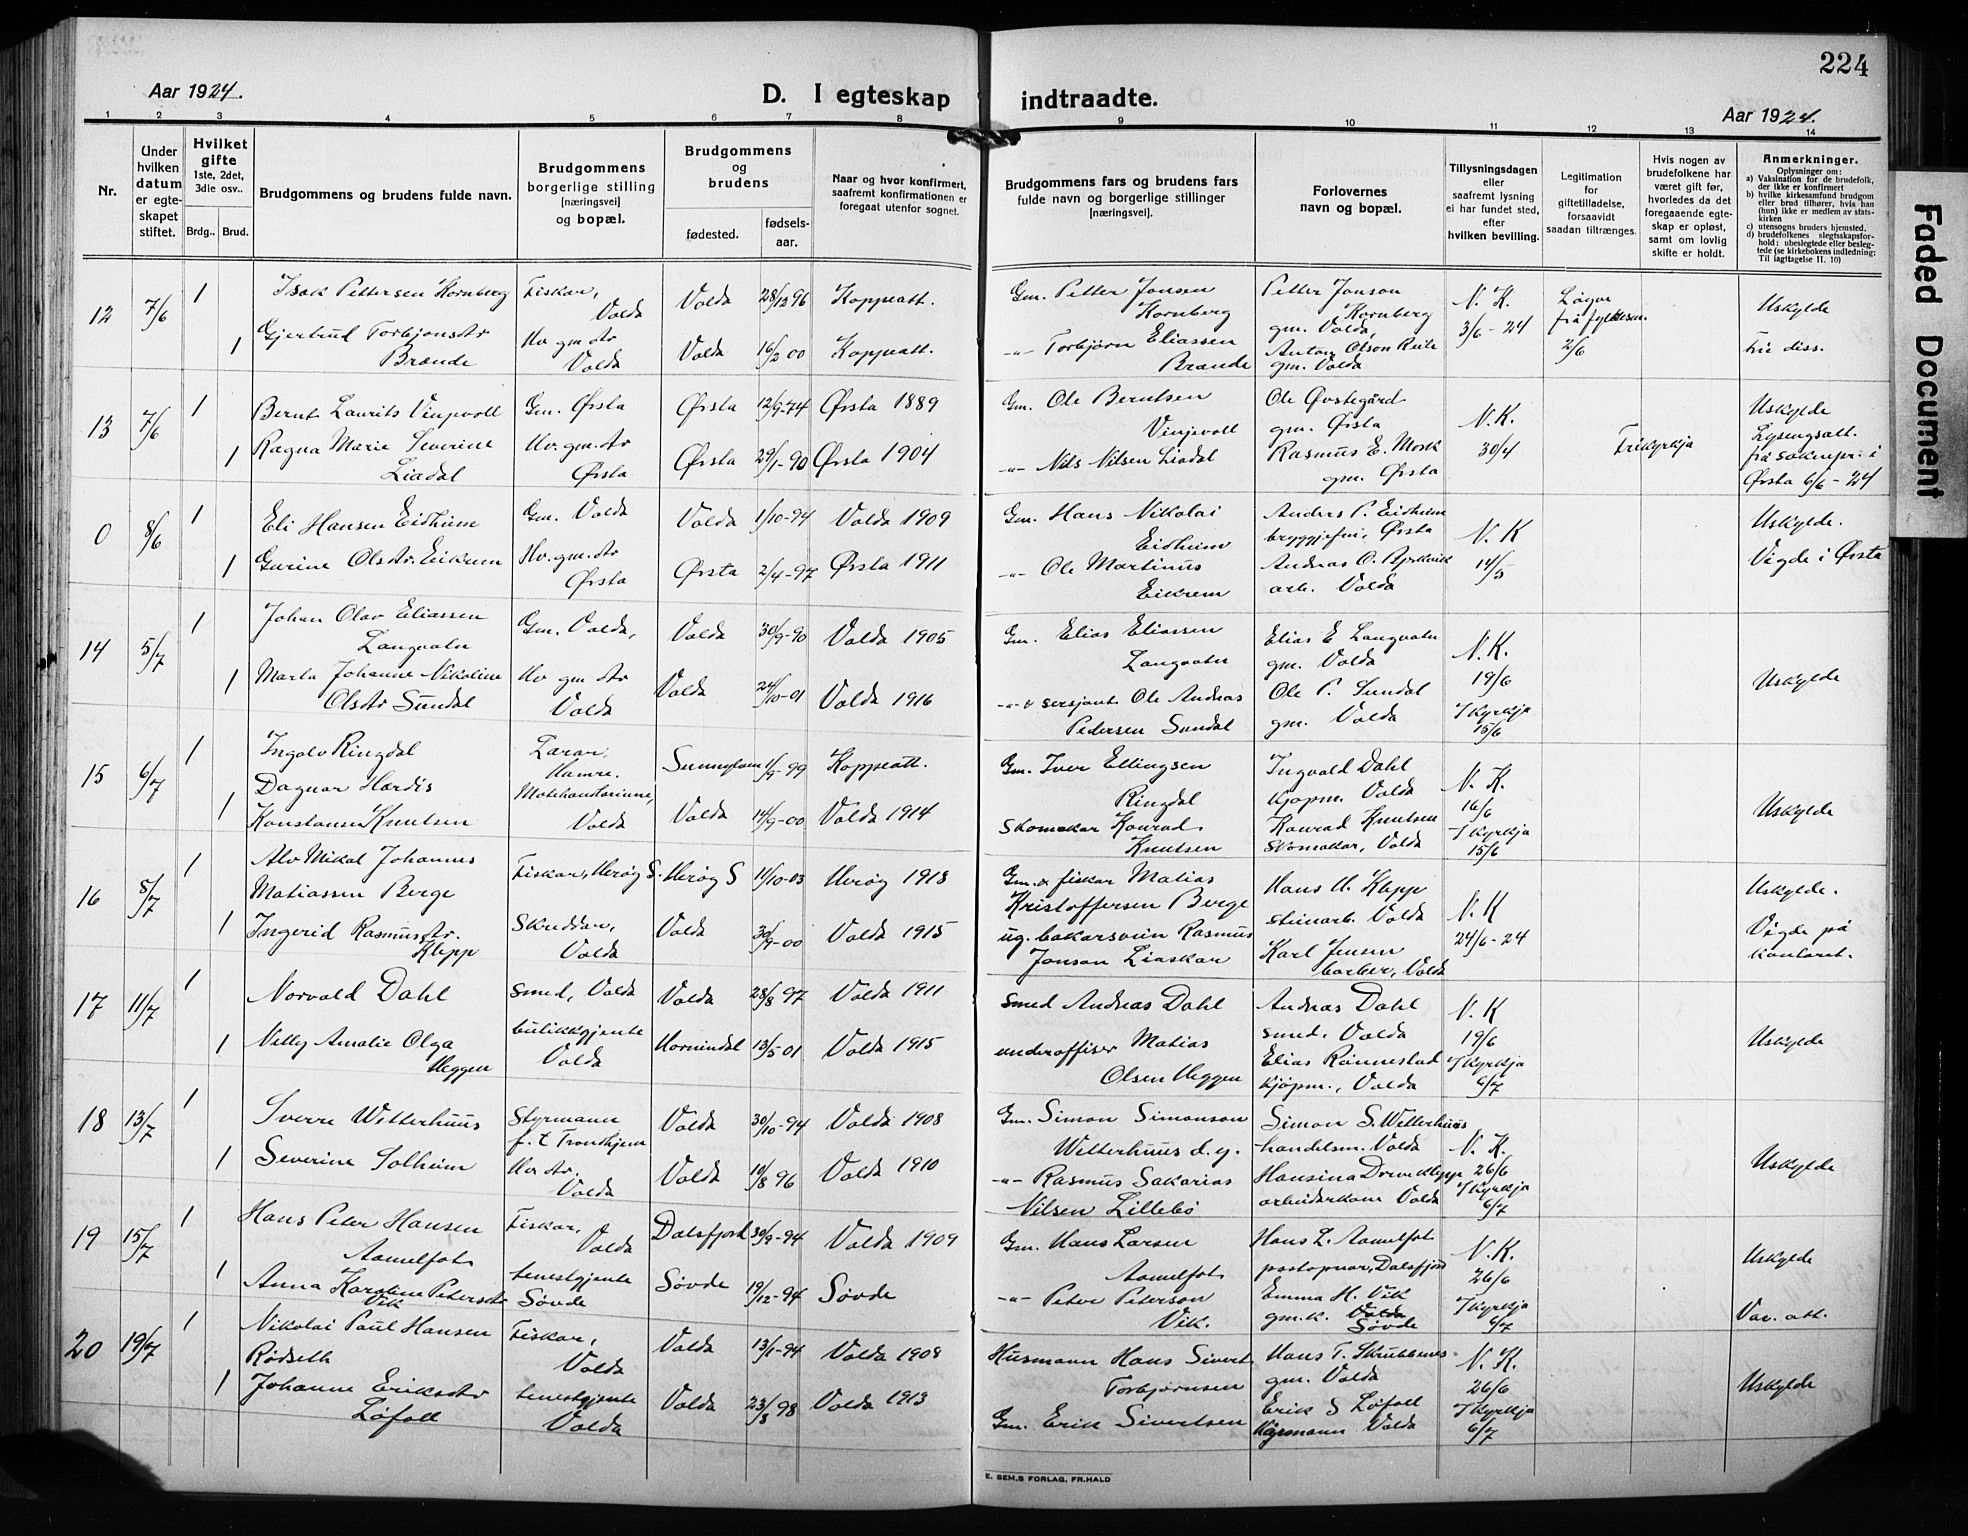 224
Aar 1924.
D. I egteskap indtraadte.
Aar 1924.
1 2 3 4 5 6 7 8 9 10 11 12 13 14
Nr.
Under hvilken datum er egteskapet stiftet.
Hvilket gifte 1ste, 2det, 3die osv..
Brdg.. Brud.
Brudgommens og brudens fulde navn.
Brudgommens borgerlige stilling [næringsvei] og bopæl.
Brudgommens og brudens
fødested. fødsels-aar.
Naar og hvor konfirmert, saafremt konfirmationen er foregaat utenfor sognet.
Brudgommens fars og brudens fars fulde navn og borgerlige stillinger [næringsvei].
Forlovernes navn og bopæl.
Tillysningsdagen eller saafremt lysning ei har fundet sted, efter hvilken bevilling.
Legitimation for giftetilladelse, forsaavidt saadan tiltrænges.
Hvis nogen av brudefolkene har været gift før, hvorledes da det foregaaende egteskap er opløst, samt om lovlig skifte er holdt.
Anmerkninger.
Oplysninger om:
a) Vaksination for de brudefolk, der ikke er konfirmert
b) hvilke kirkesamfund brudgom eller brud tilhører, hvis han (hun) ikke er medlem av statskirken
c) utensogns bruders hjemsted.
d) brudefolkenes slegtsskapsforhold: ubeslegtede eller beslegtede (se kirkebokens indledning: Til iagttagelse II. 10)
12 7/6 1 Isak Pettersen Kornberg Fiskar, Volda Volda 28/12 96 Koppeatt. Gm. Petter Jonsen Kornberg Petter Jonson Kornberg gm. Volda, N. K. 3/6-24 Løyve frå fylkesm. 2/6 Uskylde
1 Gjertrud Torbjønsdtr Brande Hv gm dtr Volda Volda 16/2 00 Koppeatt. -"- Torbjørn Eliassen Brande Anton Olson Reite gm. Volda hie diss.
13 7/6 1 Bernt Laurits Vinjevoll Gm. Ørsta Ørsta 12/9-74 Ørsta 1889 Gm. Ole Berntsen Vinjevoll Ole Øvstegård gm. Ørsta N.K. 30/4 Frikyrkja Uskylde
1 Ragna Marie Severine Liadal Hv. gm. dtr Ørsta Ørsta 29/1-90 Ørsta 1904 -"- Nils Nilsen Liadal Rasmus E. Mork gm. Ørsta Lysingsatt. frå sokenpr. i Ørsta 6/6-24
0 8/6 1 Eli Hansen Eidheim Gm. Volda Volda 1/10-94 Volda 1909 Gm. Hans Nikolai Eidheim Anders P. Eidheim Ørsta N. K 14/5 Uskylde.
1 Gurine Olsdtr. Eikrem Hv. gm. dtr Ørsta Ørsta 2/4-97 Ørsta 1911 -"- Ole Martinus Eikrem Andreas O. arb. Volda Vigde i Ørsta
14 5/7 1 Johan Olav Eliassen Langvatn Gm. Volda, Volda 30/9-90 Volda 1905 Gm. Elias Eliassen Langvatn Elias E Langvatn gm. Volda N. K. 19/6 Uskylde
1 Marta Johanne Nikoline Olsdtr Sundal Hv gm dtr Volda Volda 24/10-01 Volda 1916 -"- & sersjant Ole Andreas Pedersen Sundal Ole P. Sundal gm. Volda I kyrkja 15/6
15 6/7 1 Ingolv Ringdal Lærar, Hamre. Sunnylven 1/9-99 Koppeatt. Gm. Iver Ellingsen Ringdal Ingvald Dahl kjøpm. Volda N. K. 16/6 Uskylde
1 Dagnar Hardis Konstanse Knutsen Motehandlarinne, Volda Volda 14/9-00 Volda 1914 Skomakar Konrad Knutsen Konrad Knutsen skomakar, Volda I kyrkja 15/6
16 8/7 1 Alv Mikal Johannes Matiassen Berge Fiskar, Herøy S. Herøy S 11/10-03 Herøy 1918 Gm. & fiskar Matias Kristoffersen Berge Hans H. Klepp steinarb. Volda N. K 24/6-24 Uskylde.
1 Ingerid Rasmusdtr. Klepp Skreddar, Volda Volda 30/9-00 Volda 1915 ug. bakarsvein Rasmus Jonson Liaskar Karl Jensen barber, Volda Vigde på kontoret.
17 11/7 1 Norvald Dahl Smed, Volda Volda 28/8 97 Volda 1911 Smed Andreas Dahl Andreas Dahl smed. Volda N. K 19/6 Uskylde
1 Nelly Amalie Olga Heggen butikkgjente Volda Hornindal 13/5 01 Volda 1915 underoffiser Matias Olsen Heggen Elias Rønnestad kjøpm., Volda I kyrkja 6/7
18 13/7 1 Sverre Witterhuus Styrmann f. t Trondhjem Volda 30/10-94 Volda 1908 Gm. Simon Simonson Witterhuus d. y. Simon S. Witterhuus handelsm. Volda N. K. 26/6 Uskylde
1 Severine Solheim Hv dtr. Volda Volda 10/8 96 Volda 1910 -"- Rasmus Sakarias Nilsen Lillebø Hansina Driveklepp arbeidarkone Volda I kyrkja 6/7
19 15/7 1 Hans Peter Hansen Aamelfot Fiskar, Volda Dalsfjord 30/9-94 Volda 1909 Gm. Hans Larsen Aamelfot Hans L. Aamelfot postopnar, Dalsfjord N. K. 26/6 Uskylde
1 Anna Karoline Petersdtr Vik tenestgjente Søvde Søvde 19/12-94 Søvde -"- Peter Peterson Vik. Emma H. Vik gm.k. Volda Søvde I kyrkja 6/7 Vac. att.
20 19/7 1 Nikolai Paul Hansen Rødseth Fiskar, Volda Volda 13/1-94 Volda 1908 Husmann Hans Sivert Torbjørnsen Hans T. Skrubbmes gm. Volda N. K. 26/6 Uskylde
1 Johanne Eriksdtr Løfoll tenestgjente Volda Volda 23/8 98 Volda 1913 Gm. Erik Sivertsen Erik S Løfoll Volda I kyrkja 6/7
E. SEM.S FORLAG, FR.HALD
Faded Document